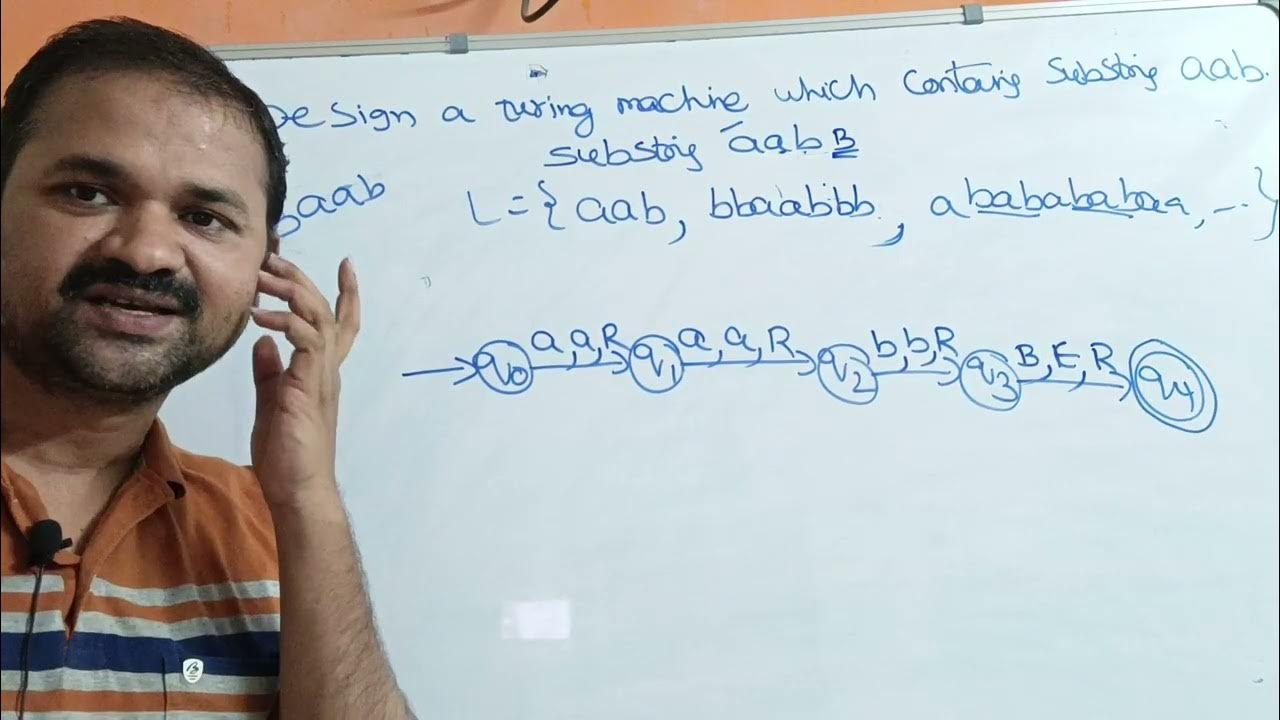 Design a turing machine which contains substring aab.
substring aab B
baab
L = { aab, bbaabbb, ababababaa, ... }
q0 a, a, R q1 a, a, R q2 b, b, R q3 B, E, R q4